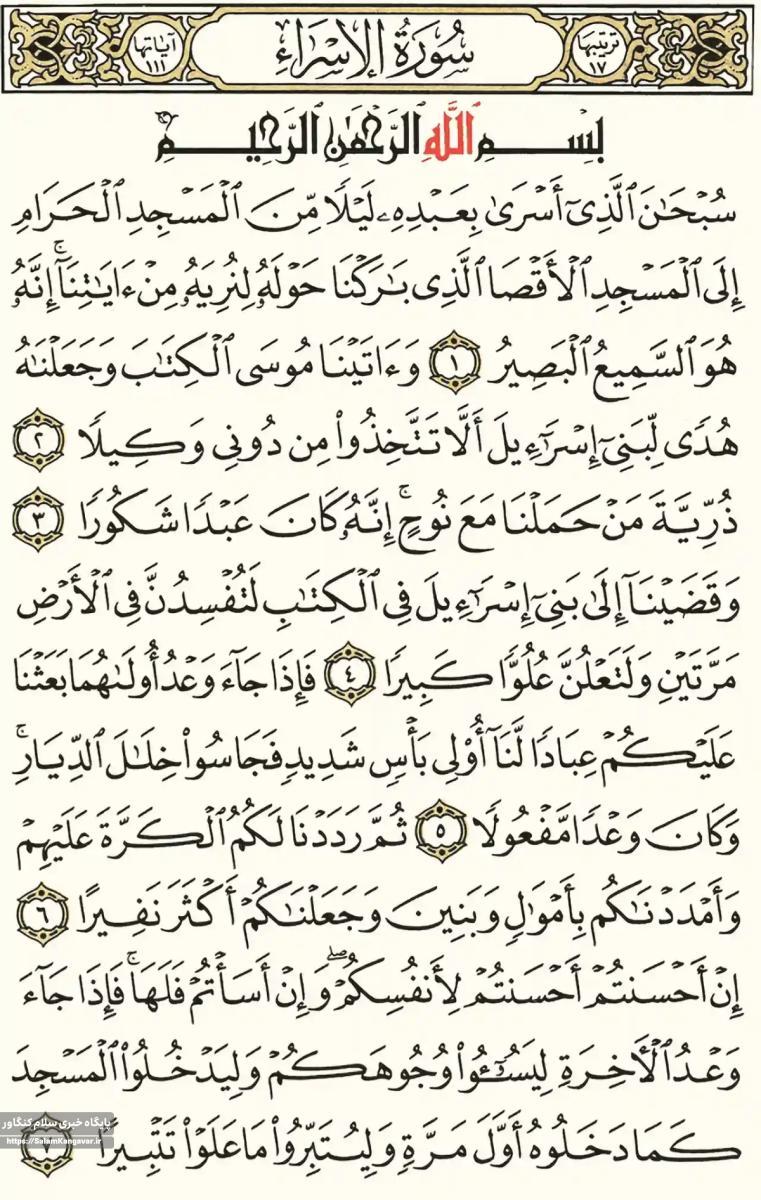 ترتيبها ١٧ سُورَةُ الإِسْرَاءِ آياتها ١١١
بِسْمِ ٱللَّهِ ٱلرَّحْمَٰنِ ٱلرَّحِيمِ
سُبْحَٰنَ ٱلَّذِىٓ أَسْرَىٰ بِعَبْدِهِۦ لَيْلًا مِّنَ ٱلْمَسْجِدِ ٱلْحَرَامِ
إِلَى ٱلْمَسْجِدِ ٱلْأَقْصَا ٱلَّذِى بَٰرَكْنَا حَوْلَهُۥ لِنُرِيَهُۥ مِنْ ءَايَٰتِنَآ ۚ إِنَّهُۥ
هُوَ ٱلسَّمِيعُ ٱلْبَصِيرُ ١ وَءَاتَيْنَا مُوسَى ٱلْكِتَٰبَ وَجَعَلْنَٰهُ
هُدًى لِّبَنِىٓ إِسْرَٰٓءِيلَ أَلَّا تَتَّخِذُوا۟ مِن دُونِى وَكِيلًا ٢
ذُرِّيَّةَ مَنْ حَمَلْنَا مَعَ نُوحٍ ۚ إِنَّهُۥ كَانَ عَبْدًا شَكُورًا ٣
وَقَضَيْنَآ إِلَىٰ بَنِىٓ إِسْرَٰٓءِيلَ فِى ٱلْكِتَٰبِ لَتُفْسِدُنَّ فِى ٱلْأَرْضِ
مَرَّتَيْنِ وَلَتَعْلُنَّ عُلُوًّا كَبِيرًا ٤ فَإِذَا جَآءَ وَعْدُ أُولَىٰهُمَا بَعَثْنَا
عَلَيْكُمْ عِبَادًا لَّنَآ أُو۟لِى بَأْسٍ شَدِيدٍ فَجَاسُوا۟ خِلَٰلَ ٱلدِّيَارِ ۚ
وَكَانَ وَعْدًا مَّفْعُولًا ٥ ثُمَّ رَدَدْنَا لَكُمُ ٱلْكَرَّةَ عَلَيْهِمْ
وَأَمْدَدْنَٰكُم بِأَمْوَٰلٍ وَبَنِينَ وَجَعَلْنَٰكُمْ أَكْثَرَ نَفِيرًا ٦
إِنْ أَحْسَنتُمْ أَحْسَنتُمْ لِأَنفُسِكُمْ ۖ وَإِنْ أَسَأْتُمْ فَلَهَا ۚ فَإِذَا جَآءَ
وَعْدُ ٱلْأَخِرَةِ لِيَسُۥٓـُٔوا۟ وُجُوهَكُمْ وَلِيَدْخُلُوا۟ ٱلْمَسْجِدَ
كَمَا دَخَلُوهُ أَوَّلَ مَرَّةٍ وَلِيُتَبِّرُوا۟ مَا عَلَوْا۟ تَتْبِيرًا ٧
پایگاه خبری سلام کنگاور
https://SalamKangavar.ir